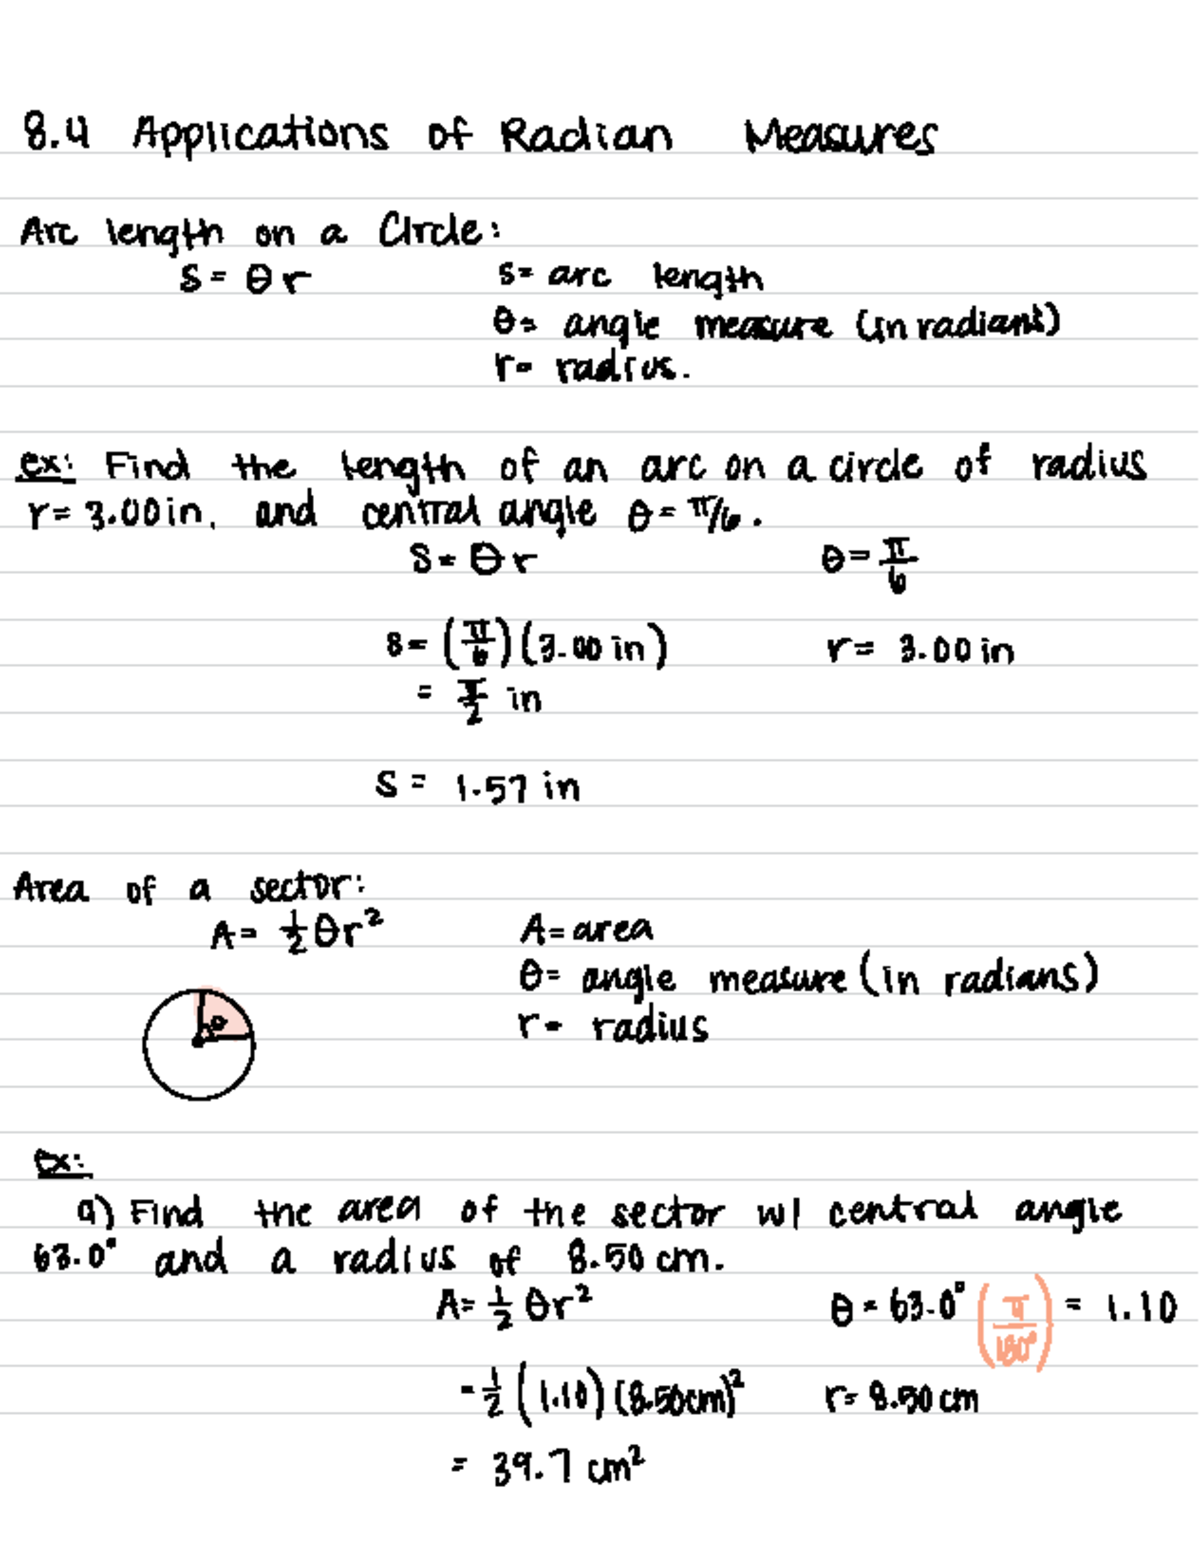 8.4 Applications of Radian Measures
Arc length on a Circle:
S = θr s= arc length
θ= angle measure (in radians)
r= radius.
ex: Find the length of an arc on a circle of radius
r= 3.00in, and central angle θ = π/6.
S = θr θ = π/6
s = (π/6)(3.00 in) r= 3.00 in
= π/2 in
S = 1.57 in
Area of a sector:
A = 1/2 θr² A= area
θ= angle measure (in radians)
r= radius
θ
ex:
a) Find the area of the sector w/ central angle
63.0° and a radius of 8.50 cm.
A= 1/2 θr² θ = 63.0° (π/180°) = 1.10
= 1/2 (1.10)(8.50cm)² r= 8.50 cm
= 39.7 cm²